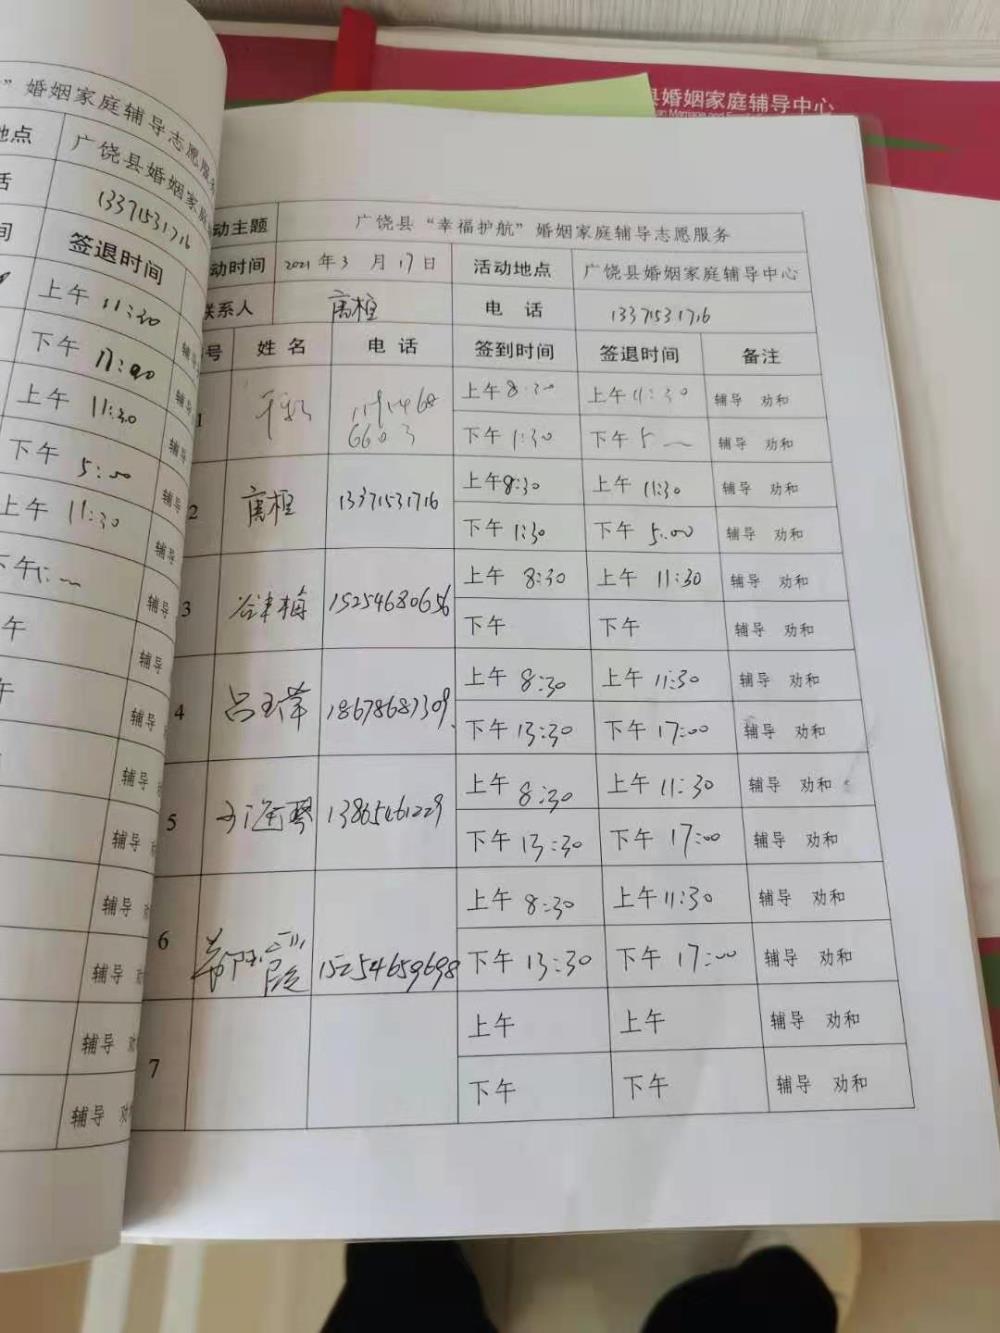 县婚姻家庭辅导中心
” 婚姻家庭辅导志愿服务
地点 广饶县婚姻家庭
话 13371531716
间 签退时间
上午 11:30
下午 17:00 辅导
上午 11:30 辅导
下午 5:00 辅导
上午 11:30 辅导
下午 辅导
午 辅导
午 辅导
辅导
辅导
辅导
辅导
辅导
辅导
辅导
动主题 广饶县“幸福护航”婚姻家庭辅导志愿服务
动时间 2021年3月17日 活动地点 广饶县婚姻家庭辅导中心
联系人 电 话 13371531716
号 姓 名 电 话 签到时间 签退时间 备注
1 上午 8:30 上午 11:30 辅导 劝和
6603 下午 1:30 下午 5 辅导 劝和
2 13371531716 上午 8:30 上午 11:30 辅导 劝和
下午 1:30 下午 5:00 辅导 劝和
3 15254680656 上午 8:30 上午 11:30 辅导 劝和
下午 下午 辅导 劝和
4 吕玉萍 18678687309 上午 8:30 上午 11:30 辅导 劝和
下午 13:30 下午 17:00 辅导 劝和
5 13865461229 上午 8:30 上午 11:30 辅导 劝和
下午 13:30 下午 17:00 辅导 劝和
6 15254659698 上午 8:30 上午 11:30 辅导 劝和
下午 13:30 下午 17:00 辅导 劝和
7 上午 上午 辅导 劝和
下午 下午 辅导 劝和